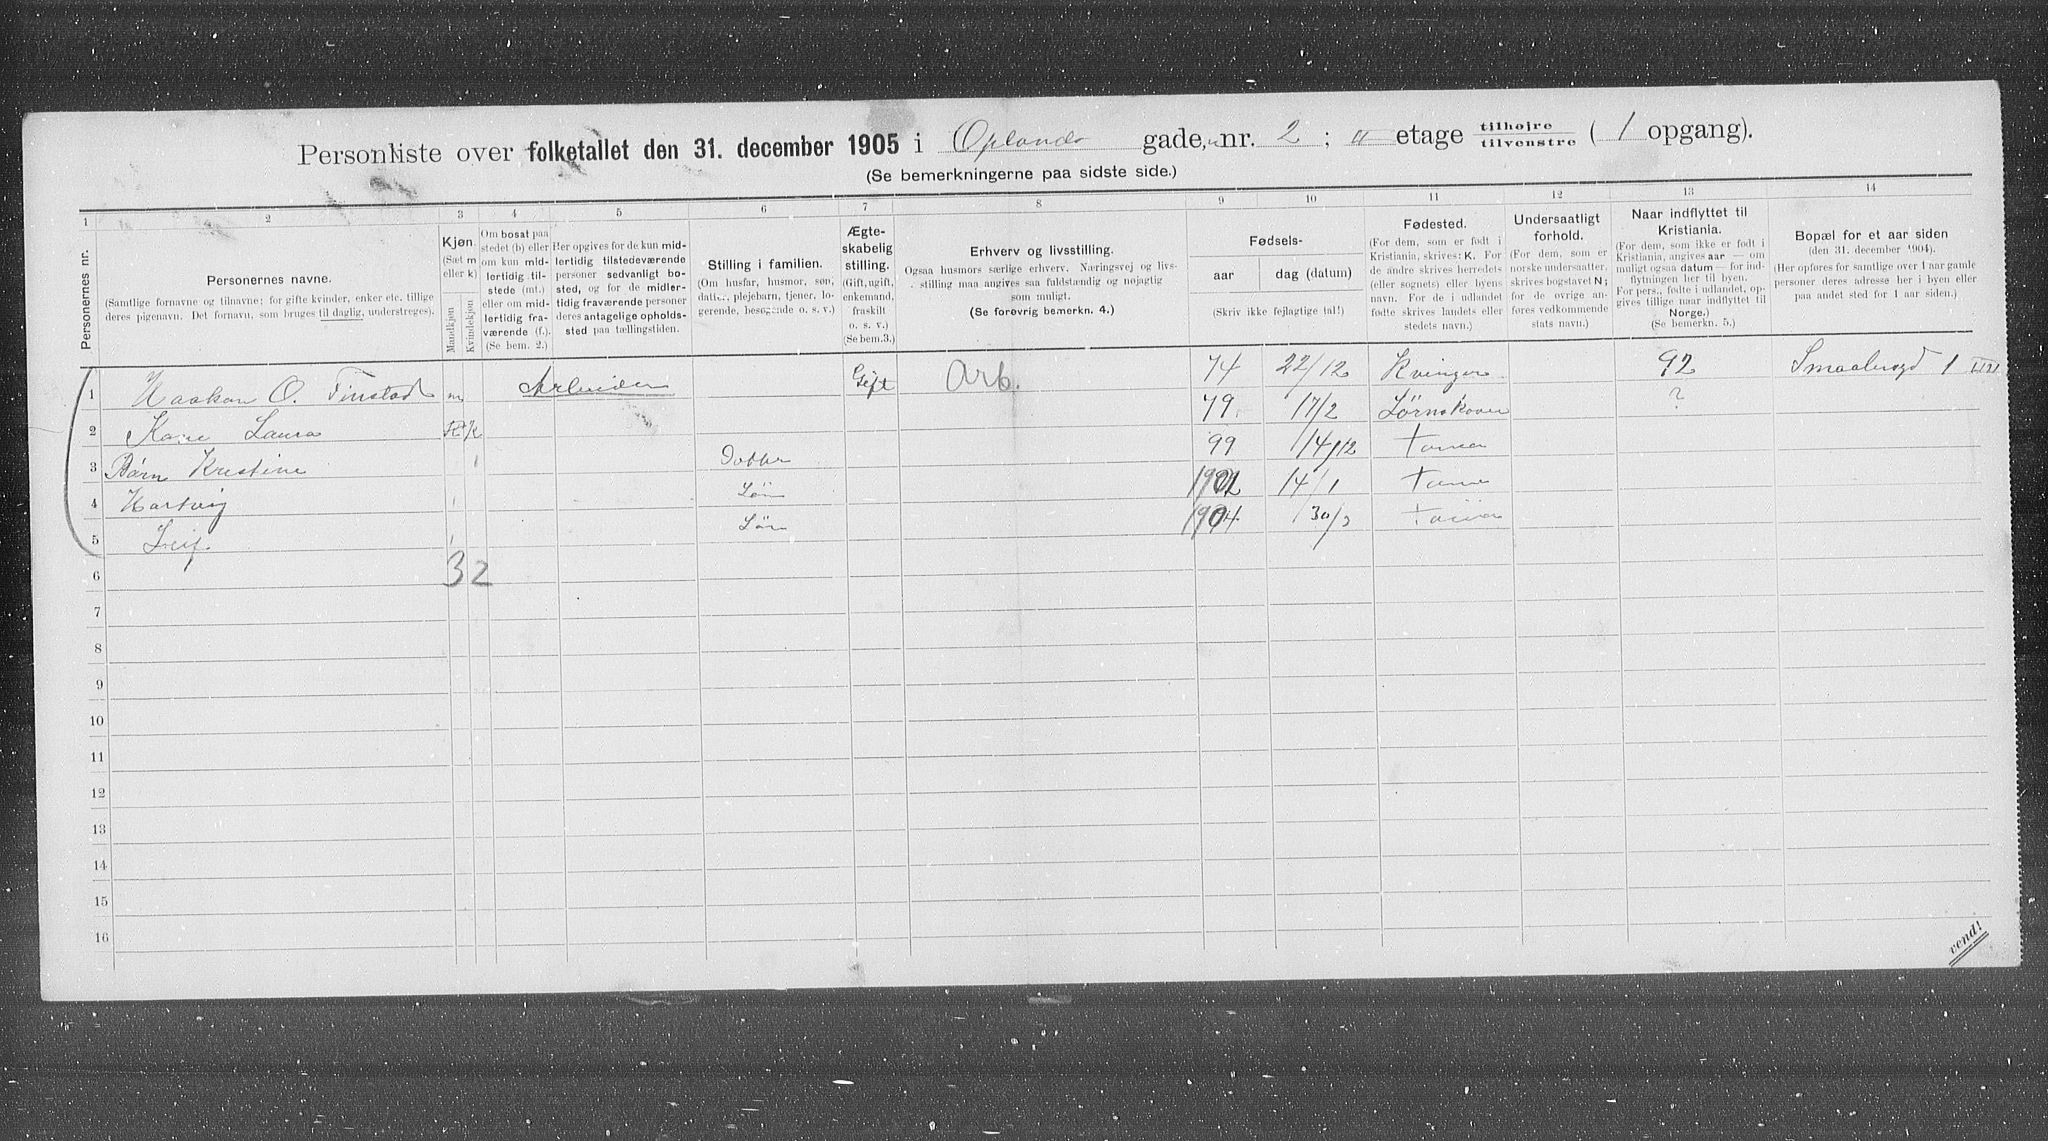 Personliste over folketallet den 31. december 1905 i Oplands gade, nr. 2 ; " etage tilhøjre / tilvenstre ( 1 opgang).
(Se bemerkningerne paa sidste side.)
1 2 3 4 5 6 7 8 9 10 11 12 13 14
Personernes nr.
Personernes navne.
(Samtlige fornavne og tilnavne; for gifte kvinder, enker etc. tillige
deres pigenavn. Det fornavn, som bruges til daglig, understreges).
Kjøn.
(Sæt m
eller k)
Mandkjøn
Kvindekjøn
Om bosat paa
stedet (b) eller
om kun midlertidig tilstede (mt.)
eller om midlertidig fraværende (f.).
(Se bem. 2.)
Her opgives for de kun midlertidig tilstedeværende
personer sedvanligt bosted, og for de midlertidig fraværende personer
deres antagelige opholdssted paa tællingstiden.
Stilling i familien.
(Om husfar, husmor, søn,
datter, plejebarn, tjener, logerende, besøgende o. s. v.)
Ægteskabelig
stilling.
(Gift, ugift,
enkemand,
fraskilt
o. s. v.)
(Se bem.3.)
Erhverv og livsstilling.
Ogsaa husmors særlige erhverv. Næringsvej og livsstilling maa angives saa fuldstændig og nøjagtig
som muligt.
(Se forøvrig bemerkn. 4.)
Fødsels-
aar
dag (datum)
(Skriv ikke fejlagtige tal!)
Fødested.
(For dem, som er født i
Kristiania, skrives: K. For
de andre skrives herredets
(eller sognets) eller byens
navn. For de i udlandet
fødte skrives landets eller
stedets navn.)
Undersaatligt
forhold.
(For dem, som er
norske undersaatter,
skrives bogstavet N;
for de øvrige anføres vedkommende
stats navn.)
Naar indflyttet til
Kristiania.
(For dem, som ikke er født i
Kristiania, angives aar — om
muligt ogsaa datum — for indflytningen her til byen.
For pers., fødte i udlandet, opgives tillige naar indflyttet til
Norge.)
(Se bemerkn. 5.)
Bopæl for et aar siden
(den 31. december 1904).
(Her opføres for samtlige over 1 aar gamle
personer deres adresse her i byen eller
paa andet sted for 1 aar siden.)
1 Haakon O. Finstad m Arbeider Gift Arb. 74 22/12 Kvinger 92 Smaabergd 1
2 Kare Laura K 79 17/2 Lørnskoven ?
3 Børn Kristine 1 Dotter 99 14/12
4 Hartvig 1 Søn 1902 14/1
5 Leif 1 Søn 1904 30/3
3 2
6
7
8
9
10
11
12
13
14
15
16
vend!